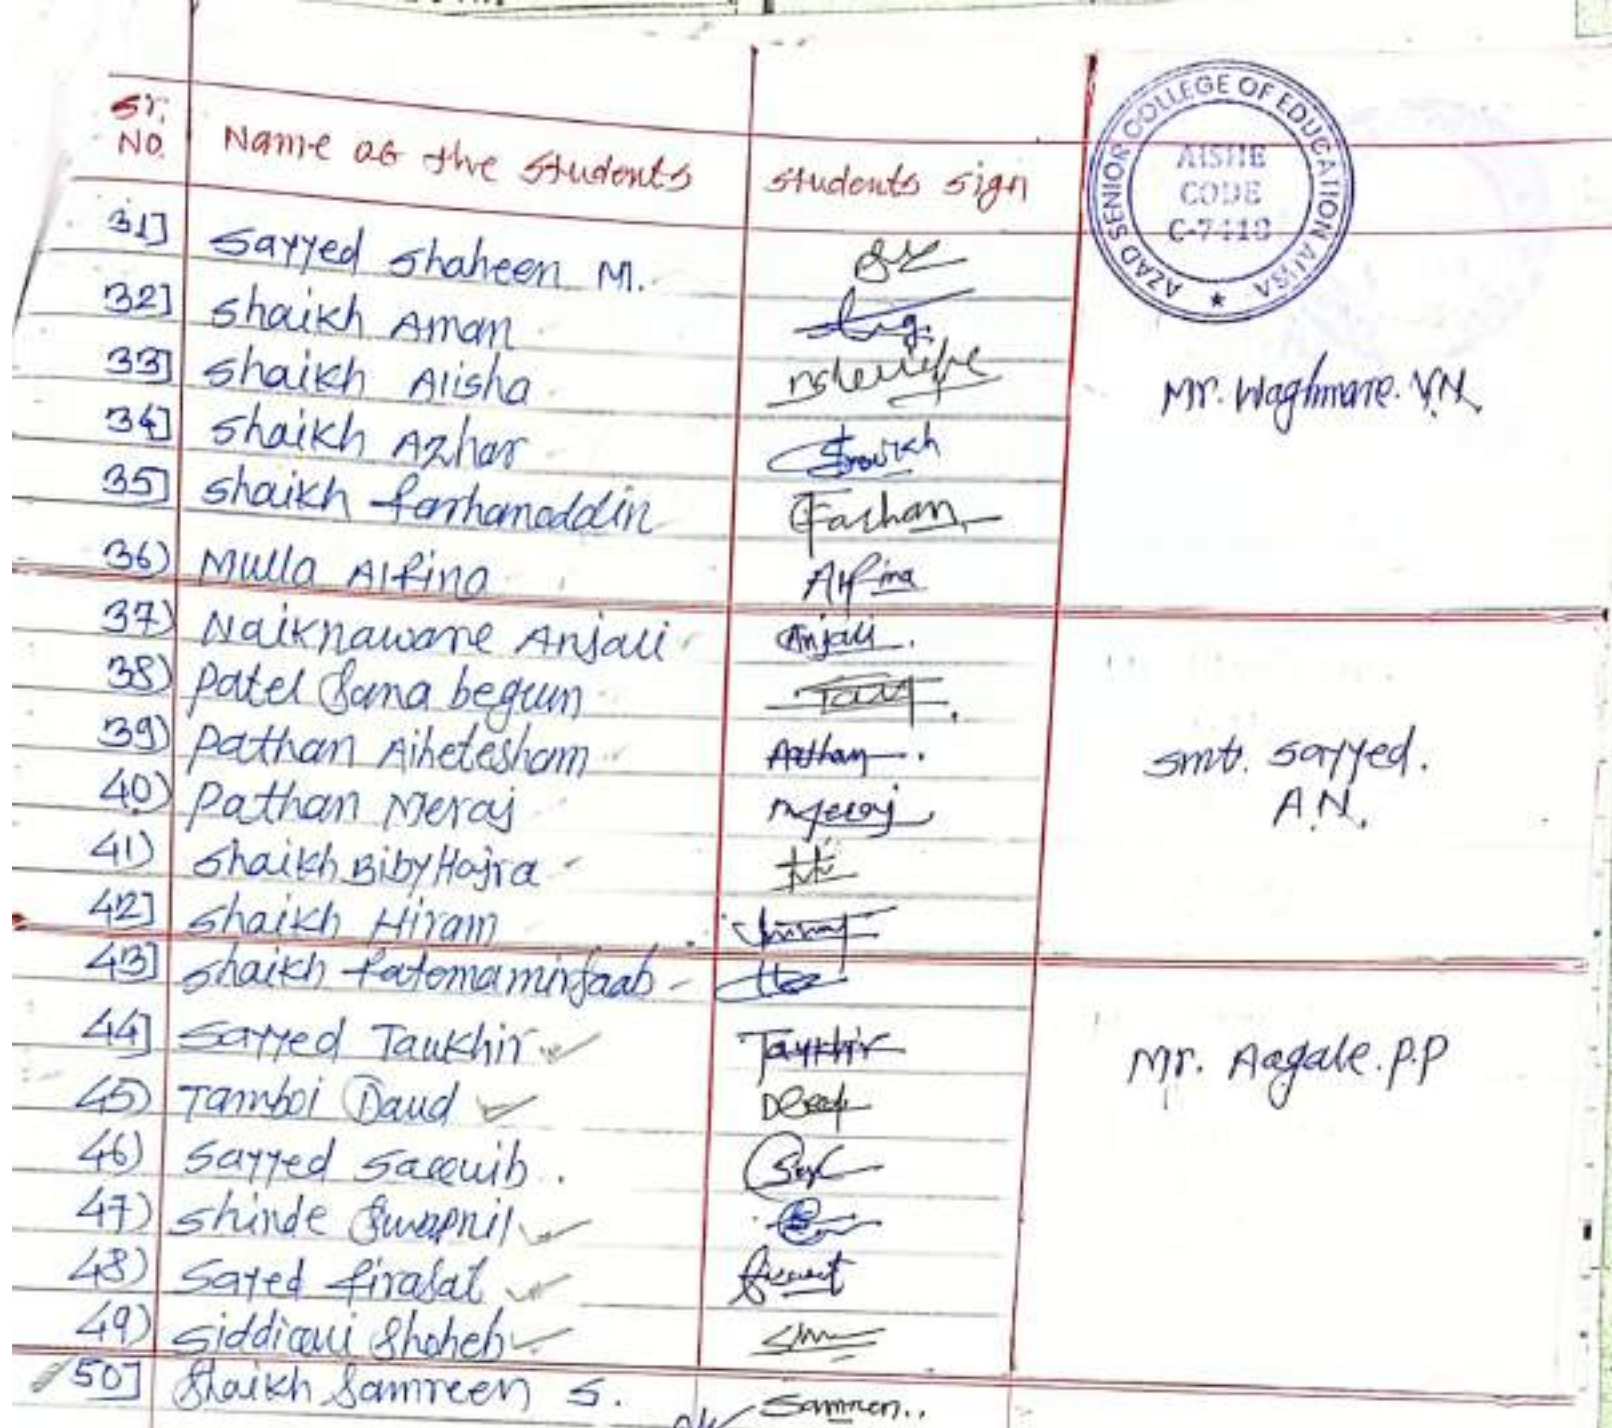 Sr. No. Name of the students students sign
AZAD SENIOR COLLEGE OF EDUCATION AUSA
AISHE
CODE
C-7418
31] Sayyed Shaheen M.
32] Shaikh Aman
33] Shaikh Alisha
Mr. Waghmare. V.N.
34] Shaikh Azhar Shaikh
35] Shaikh farhanoddin Farhan
36) Mulla Alfina Alfina
37) Naiknaware Anjali Anjali.
38) Patel Sana begum
39) Pathan Aihetesham Pathan.
Smt. Sayyed.
A.N.
40) Pathan Meraj Meraj
41) Shaikh Biby Hajra
42] Shaikh Hiram
43] Shaikh fatema
44] Sayyed Taukhir Taukhir
Mr. Aagale. P.P
45) Tamboi Daud
46) Sayyed
47) Shinde Swapnil
48) Sayed firasat
49) Siddiqui Shoheb
50] Shaikh Samreen S. Samreen..